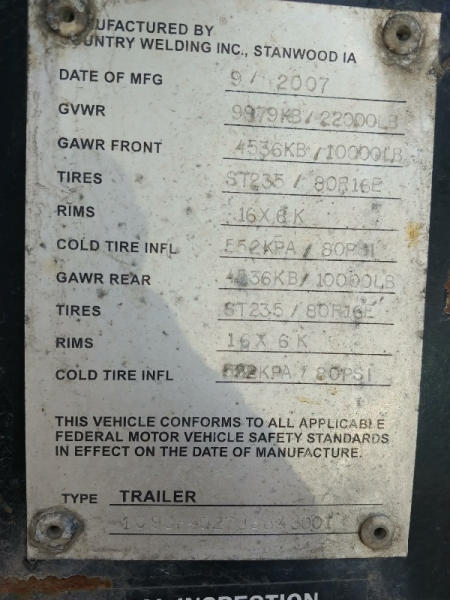 MANUFACTURED BY
COUNTRY WELDING INC., STANWOOD IA
DATE OF MFG 9/ 2007
GVWR 9979KB/22000LB
GAWR FRONT 4536KB/10000LB
TIRES ST235/80R16E
RIMS 16X6K
COLD TIRE INFL 552KPA/80PSI
GAWR REAR 4536KB/10000LB
TIRES ST235/80R16E
RIMS 16X6K
COLD TIRE INFL 552KPA/80PSI
THIS VEHICLE CONFORMS TO ALL APPLICABLE
FEDERAL MOTOR VEHICLE SAFETY STANDARDS
IN EFFECT ON THE DATE OF MANUFACTURE.
TYPE TRAILER
INSPECTION